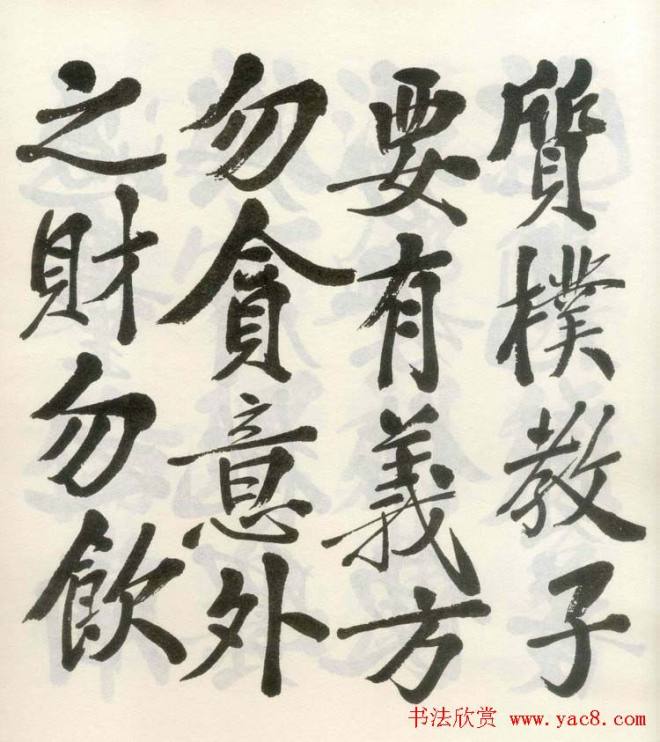 質樸教子
要有義方
勿貪意外
之財勿飲
书法欣赏 www.yac8.com